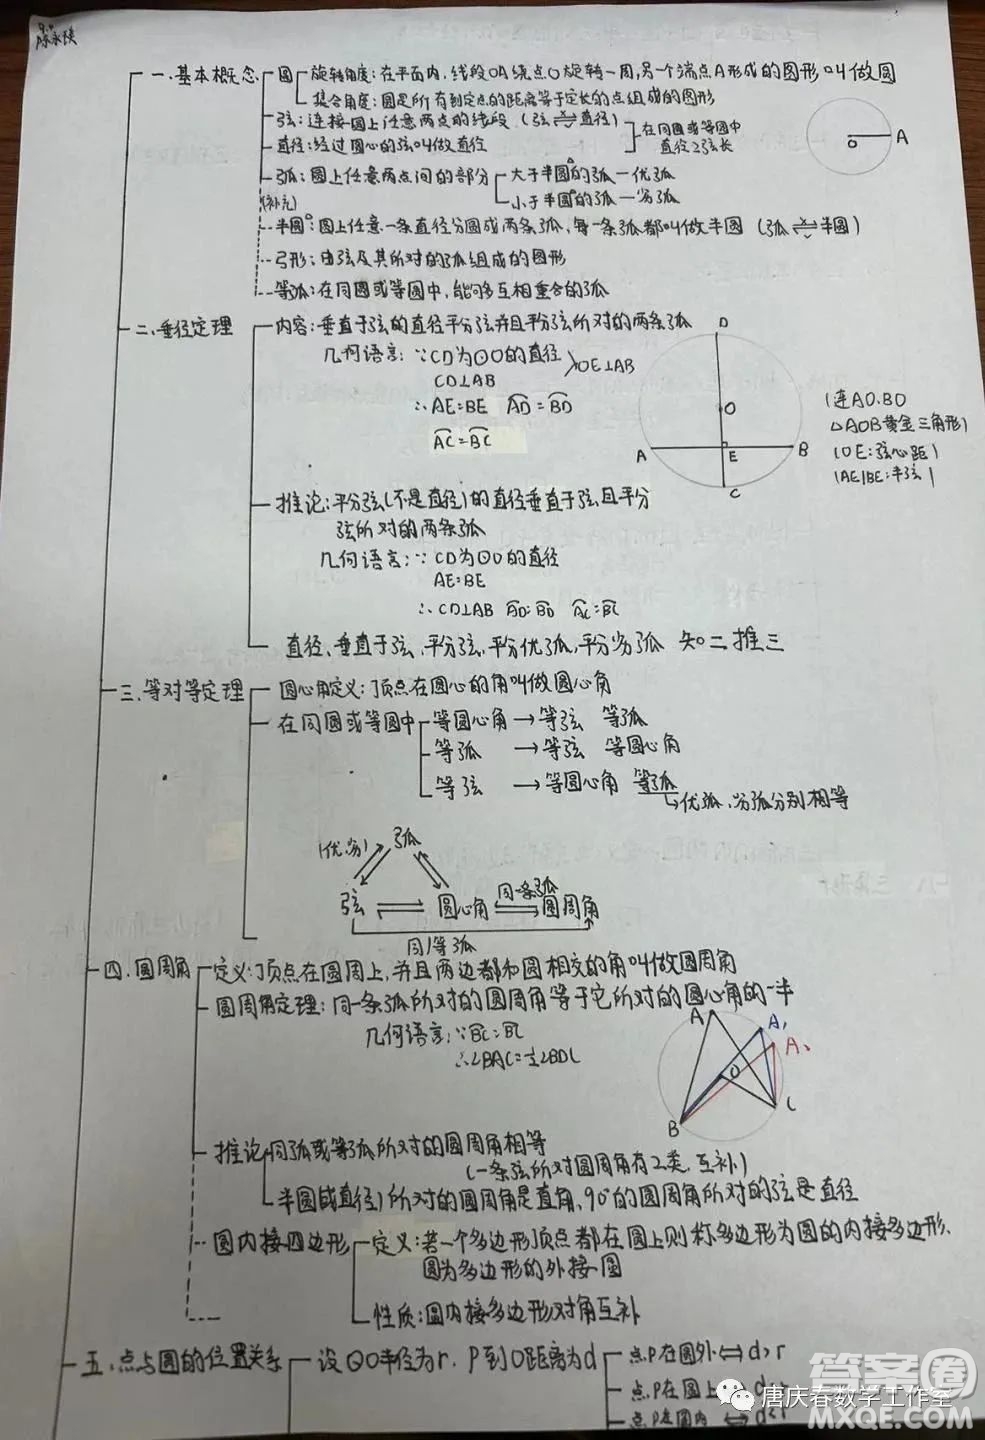 一.基本概念
圆
旋转角度:在平面内,线段OA绕点O旋转一周,另一个端点A形成的图形叫做圆
集合角度:圆是所有到定点的距离等于定长的点组成的图形
弦:连接圆上任意两点的线段 (弦⇌直径)
直径:经过圆心的弦叫做直径
在同圆或等圆中
直径≥弦长
O A
弧:圆上任意两点间的部分
大于半圆的弧—优弧
小于半圆的弧—劣弧
(补充)
半圆:圆上任意一条直径分圆成两条弧,每一条弧都叫做半圆 (弧⇌半圆)
弓形:由弦及其所对的弧组成的图形
等弧:在同圆或等圆中,能够互相重合的弧
二.垂径定理
内容:垂直于弦的直径平分弦并且平分弦所对的两条弧
几何语言:∵CD为⊙O的直径
CD⊥AB
OE⊥AB
∴AE=BE AD=BD
AC=BC
D
O
A E B
C
(连AO.BO
△AOB黄金三角形)
(OE:弦心距)
(AE/BE:半弦)
推论:平分弦(不是直径)的直径垂直于弦且平分
弦所对的两条弧
几何语言:∵CD为⊙O的直径
AE=BE
∴CD⊥AB AD=BD AC=BC
直径、垂直于弦、平分弦、平分优弧,平分劣弧 知二推三
三.等对等定理
圆心角定义:顶点在圆心的角叫做圆心角
在同圆或等圆中
等圆心角→等弦 等弧
等弧 →等弦 等圆心角
等弦 →等圆心角 等弧
↳优弧、劣弧分别相等
(优.劣) 弧
弦 ⇌ 圆心角 同一条弧 圆周角
同/等弧
四.圆周角
定义:顶点在圆周上,并且两边都和圆相交的角叫做圆周角
圆周角定理:同一条弧所对的圆周角等于它所对的圆心角的一半
几何语言:∵BC=BC
∴∠BAC=½∠BOC
A A₁
A₂
O
B C
推论
同弧或等弧所对的圆周角相等
(一条弦所对圆周角有2类,互补)
半圆(或直径)所对的圆周角是直角,90°的圆周角所对的弦是直径
圆内接四边形
定义:若一个多边形顶点都在圆上则称多边形为圆的内接多边形、
圆为多边形的外接圆
性质:圆内接多边形对角互补
五.点与圆的位置关系
设⊙O半径为r.P到O距离为d
点P在圆外⇔d>r
点P在圆上⇔d=r
点P在圆内⇔d<r
唐庆春数学工作室
答案圈
MXQE.COM